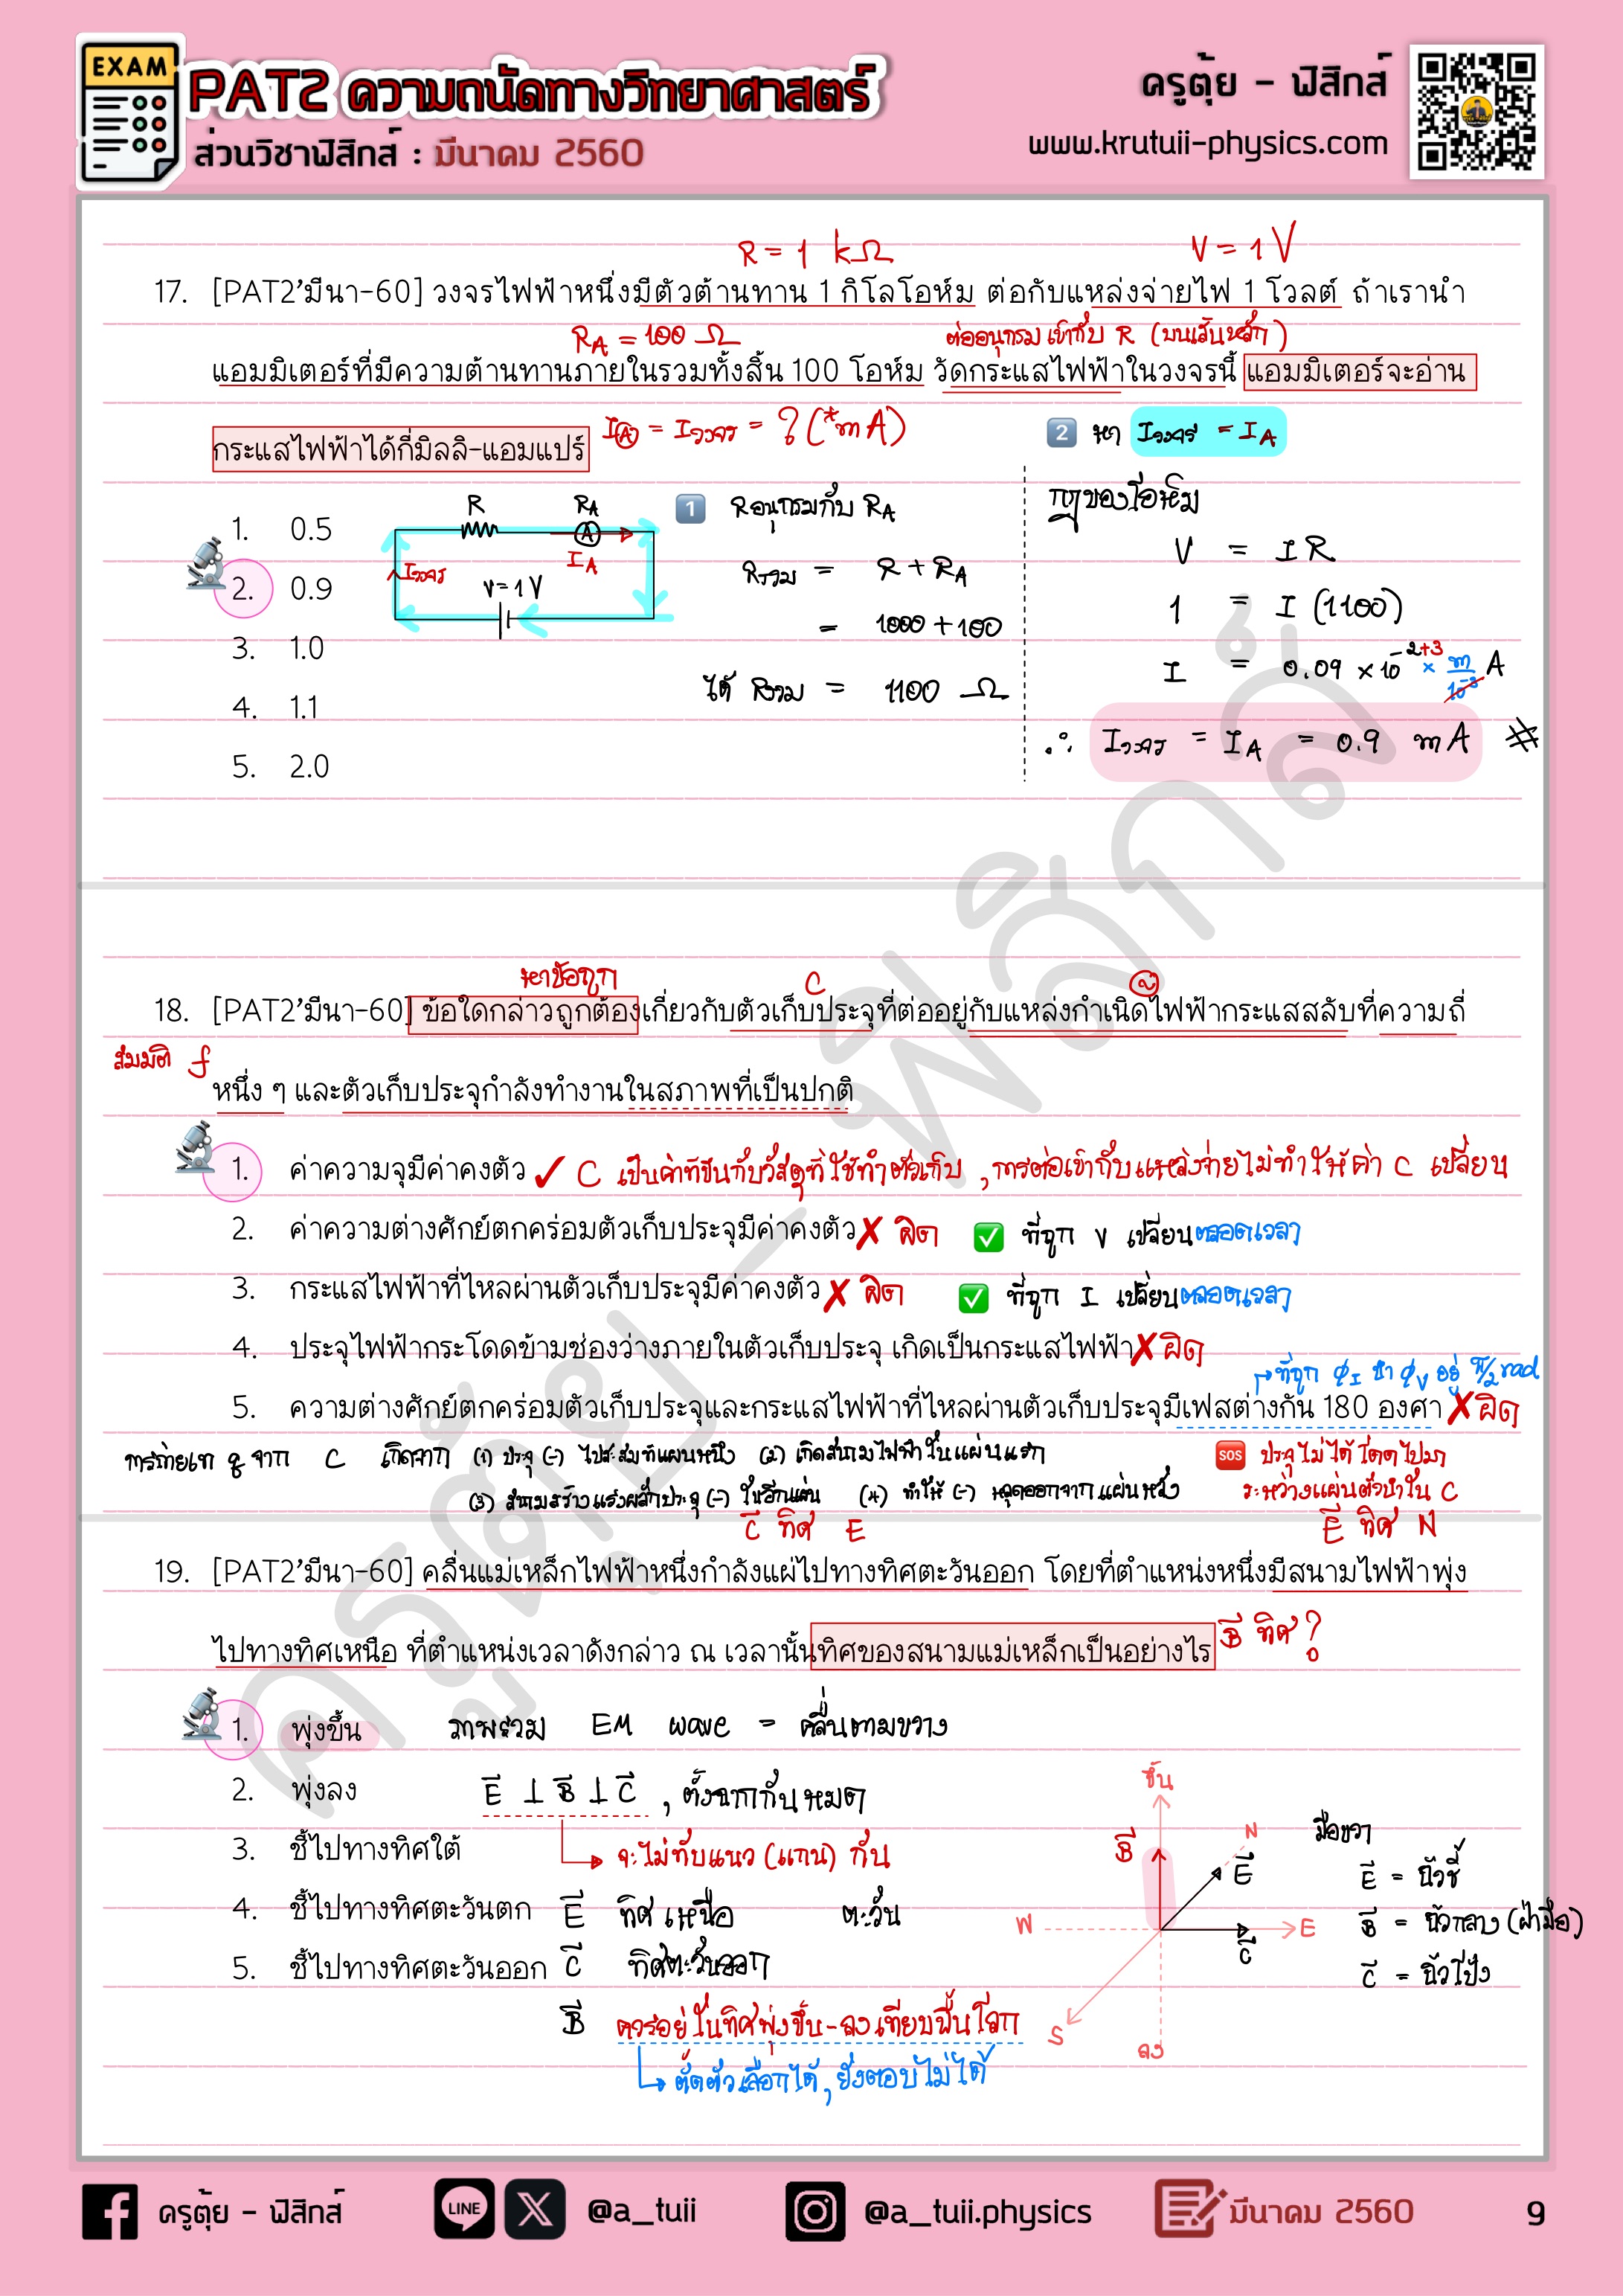 EXAM
PAT2 ความถนัดทางวิทยาศาสตร์
ส่วนวิชาฟิสิกส์ : มีนาคม 2560
ครูตุ้ย - ฟิสิกส์
www.krutuii-physics.com
R = 1 kΩ
V = 1 V
17. [PAT2'มีนา-60] วงจรไฟฟ้าหนึ่งมีตัวต้านทาน 1 กิโลโอห์ม ต่อกับแหล่งจ่ายไฟ 1 โวลต์ ถ้าเรานำ
RA = 100 Ω
ต่ออนุกรมเข้ากับ R (บนเส้นหลัก)
แอมมิเตอร์ที่มีความต้านทานภายในรวมทั้งสิ้น 100 โอห์ม วัดกระแสไฟฟ้าในวงจรนี้ แอมมิเตอร์จะอ่าน
กระแสไฟฟ้าได้กี่มิลลิ-แอมแปร์
IA = Iวงจร = ? (*mA)
2 หา Iวงจร = IA
1. 0.5
2. 0.9
3. 1.0
4. 1.1
5. 2.0
R
RA
A
IA
Iวงจร
V = 1 V
1 Rอนุกรมกับ RA
Rรวม = R + RA
= 1000 + 100
ได้ Rรวม = 1100 Ω
กฎของโอห์ม
V = IR
1 = I (1100)
I = 0.09 × 10⁻²⁺³ × m/10⁻³ A
∴ Iวงจร = IA = 0.9 mA #
หาข้อถูก
C
18. [PAT2'มีนา-60] ข้อใดกล่าวถูกต้องเกี่ยวกับตัวเก็บประจุที่ต่ออยู่กับแหล่งกำเนิดไฟฟ้ากระแสสลับที่ความถี่
สมมติ f
หนึ่ง ๆ และตัวเก็บประจุกำลังทำงานในสภาพที่เป็นปกติ
1. ค่าความจุมีค่าคงตัว ✓ C เป็นค่าที่ขึ้นกับวัสดุที่ใช้ทำตัวเก็บ , การต่อเข้ากับแหล่งจ่ายไม่ทำให้ค่า C เปลี่ยน
2. ค่าความต่างศักย์ตกคร่อมตัวเก็บประจุมีค่าคงตัว ✗ ผิด ✅ ที่ถูก V เปลี่ยนตลอดเวลา
3. กระแสไฟฟ้าที่ไหลผ่านตัวเก็บประจุมีค่าคงตัว ✗ ผิด ✅ ที่ถูก I เปลี่ยนตลอดเวลา
4. ประจุไฟฟ้ากระโดดข้ามช่องว่างภายในตัวเก็บประจุ เกิดเป็นกระแสไฟฟ้า ✗ ผิด
ที่ถูก ϕI นำ ϕV อยู่ π/2 rad
5. ความต่างศักย์ตกคร่อมตัวเก็บประจุและกระแสไฟฟ้าที่ไหลผ่านตัวเก็บประจุมีเฟสต่างกัน 180 องศา ✗ ผิด
การถ่ายเท q จาก C เกิดจาก (1) ประจุ (-) ไปสะสมที่แผ่นหนึ่ง (2) เกิดสนามไฟฟ้าในแผ่นแรก
SOS ประจุไม่ได้โดดไปมา
(3) สนามสร้างแรงผลักประจุ (-) ในอีกแผ่น (4) ทำให้ (-) หลุดออกจากแผ่นหลัง
ระหว่างแผ่นตัวนำใน C
C ทิศ E
E ทิศ N
19. [PAT2'มีนา-60] คลื่นแม่เหล็กไฟฟ้าหนึ่งกำลังแผ่ไปทางทิศตะวันออก โดยที่ตำแหน่งหนึ่งมีสนามไฟฟ้าพุ่ง
ไปทางทิศเหนือ ที่ตำแหน่งเวลาดังกล่าว ณ เวลานั้นทิศของสนามแม่เหล็กเป็นอย่างไร
B ทิศ ?
1. พุ่งขึ้น
2. พุ่งลง
3. ชี้ไปทางทิศใต้
4. ชี้ไปทางทิศตะวันตก
5. ชี้ไปทางทิศตะวันออก
ภาพรวม EM wave = คลื่นตามขวาง
E ⊥ B ⊥ C , ตั้งฉากกันหมด
จะไม่ทับแนว (แกน) กัน
E ทิศเหนือ
ตะวัน
C ทิศตะวันออก
B ควรอยู่ในทิศพุ่งขึ้น-ลงเทียบพื้นโลก
ตัดตัวเลือกได้, ยังตอบไม่ได้
ขึ้น
N
B
E
W
E
C
S
ลง
มือขวา
E = นิ้วชี้
B = นิ้วกลาง (ฝ่ามือ)
C = นิ้วโป้ง
ครูตุ้ย - ฟิสิกส์
LINE
X
@a_tuii
@a_tuii.physics
มีนาคม 2560
9
ครูตุ้ย - ฟิสิกส์